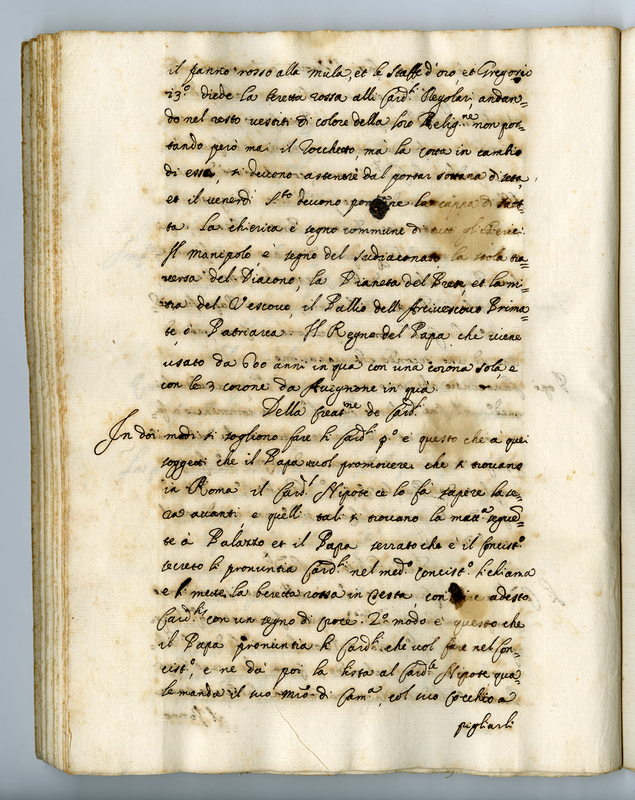 il panno rosso alla mula, et le staffe d'oro, et Gregorio
13.º diede la beretta rossa alli Card.li Regolari, andan=
do nel resto vestiti di colore della loro Relig.ne non por=
tando però mai il Rocchetto, ma la cotta in cambio
di esso, si devono astenere dal portar sottana di seta,
et il venerdì S.to devono la cappa di
la chierica è segno commune di tutti gli
Il manipolo è segno del sudiaconato, la stola tra=
versa del Diacono, la Pianeta del Prete, et la mi=
tra del Vescovo, il Pallio dell' Arcivescovo Prima=
te, ò Patriarca. Il Regno del Papa che viene
usato da 600 anni in qua con una corona sola, e
con le 3 corone da Avignone in quà
Della Creat.ne de Card.li
In doi modi si sogliono fare li Card.li p.º è questo che a quei
soggetti che il Papa vuol promovere che si trovano
in Roma il Card.l Nipote ce lo fà sapere la se=
ra avanti e quelli tali si trovano la matt.a seguen=
te à Palazzo et il Papa serrato che è il Concist.º
secreto li pronuntia Card.li nel med.º concist.º li chiama
e li mette la beretta rossa in testa, con dire adesto
Card.lis con un segno di croce. 2.º modo è questo che
il Papa pronuntia li Card.li che vol fare nel Con=
cist.º, e ne dà poi la lista al Card.le Nipote qua=
le manda il suo m.ro di Cam.a, col suo Cocchio a
pigliarli